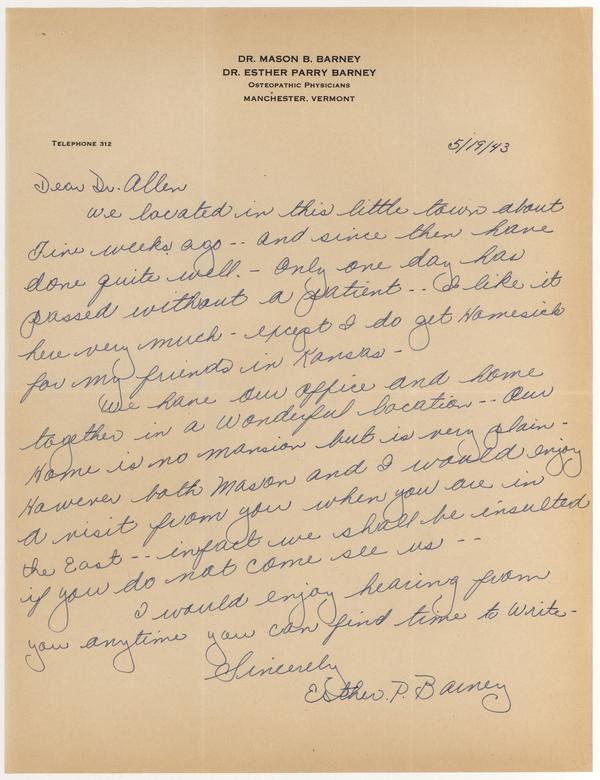 DR. MASON B. BARNEY
DR. ESTHER PARRY BARNEY
OSTEOPATHIC PHYSICIANS
MANCHESTER, VERMONT
TELEPHONE 312
5/19/43
Dear Dr. Allen
We located in this little town about
Five weeks ago -- and since then have
done quite well. - Only one day has
passed without a patient -- I like it
here very much - except I do get Homesick
for my friends in Kansas -
We have our office and home
together in a wonderful location -- Our
Home is no mansion but is very plain -
However both Mason and I would enjoy
a visit from you when you are in
the East -- infact we shall be insulted
if you do not come see us --
I would enjoy hearing from
you anytime you can find time to write -
Sincerely
Esther. P. Barney